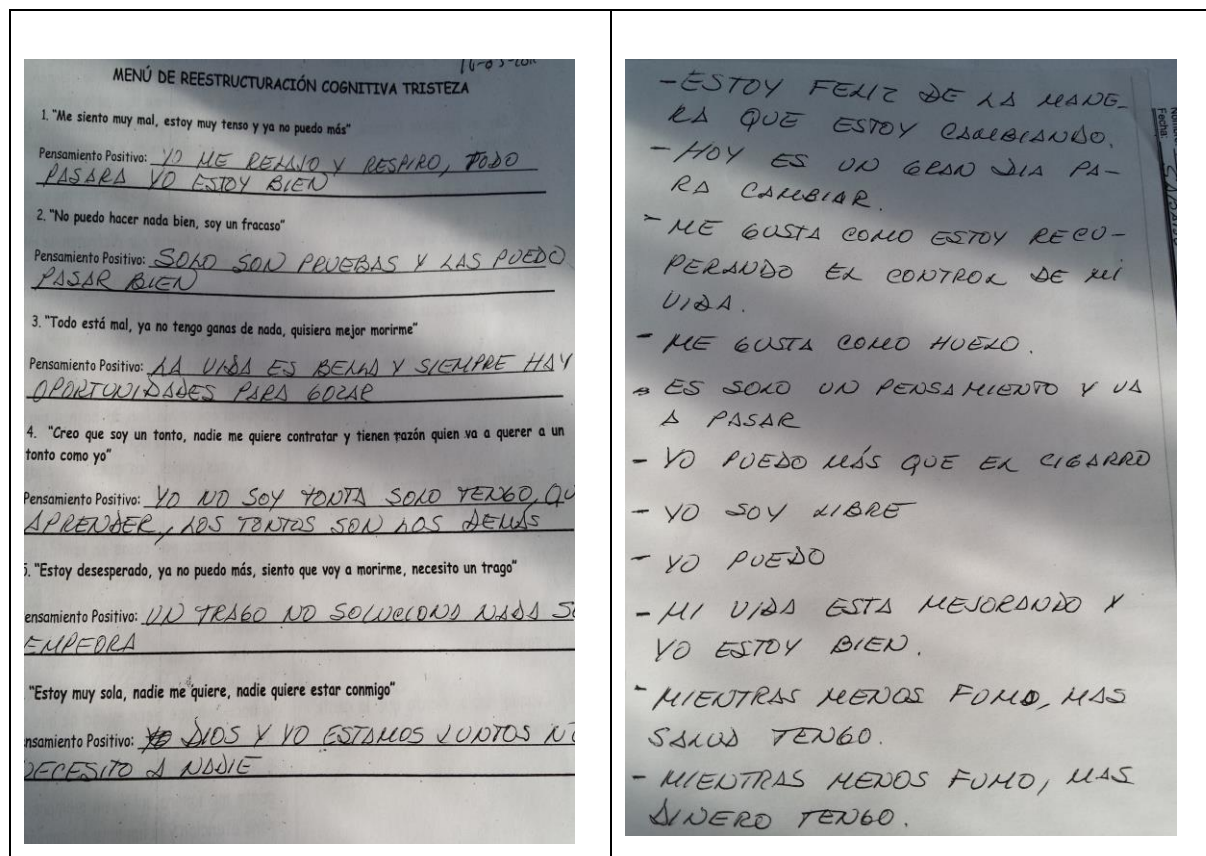 MENÚ DE REESTRUCTURACIÓN COGNITIVA TRISTEZA
1. "Me siento muy mal, estoy muy tenso y ya no puedo más"
Pensamiento Positivo: YO ME RELAJO Y RESPIRO, TODO
PASARA YO ESTOY BIEN
2. "No puedo hacer nada bien, soy un fracaso"
Pensamiento Positivo: SOLO SON PRUEBAS Y LAS PUEDO
PASAR BIEN
3. "Todo está mal, ya no tengo ganas de nada, quisiera mejor morirme"
Pensamiento Positivo: LA VIDA ES BELLA Y SIEMPRE HAY
OPORTUNIDADES PARA GOZAR
4. "Creo que soy un tonto, nadie me quiere contratar y tienen razón quien va a querer a un
tonto como yo"
Pensamiento Positivo: YO NO SOY TONTA SOLO TENGO, QU
APRENDER, LOS TONTOS SON LOS DEMÁS
5. "Estoy desesperado, ya no puedo más, siento que voy a morirme, necesito un trago"
ensamiento Positivo: UN TRAGO NO SOLUCIONA NADA SO
EMPEORA
"Estoy muy sola, nadie me quiere, nadie quiere estar conmigo"
nsamiento Positivo: DIOS Y YO ESTAMOS JUNTOS NO
NECESITO A NADIE
- ESTOY FELIZ DE LA MANE-
RA QUE ESTOY CAMBIANDO.
- HOY ES UN GRAN DIA PA-
RA CAMBIAR.
- ME GUSTA COMO ESTOY RECU-
PERANDO EL CONTROL DE MI
VIDA.
- ME GUSTA COMO HUELO.
- ES SOLO UN PENSAMIENTO Y VA
A PASAR
- YO PUEDO MÁS QUE EL CIGARRO
- YO SOY LIBRE
- YO PUEDO
- MI VIDA ESTA MEJORANDO Y
YO ESTOY BIEN.
- MIENTRAS MENOS FUMO, MAS
SALUD TENGO.
- MIENTRAS MENOS FUMO, MAS
DINERO TENGO.
Fecha: